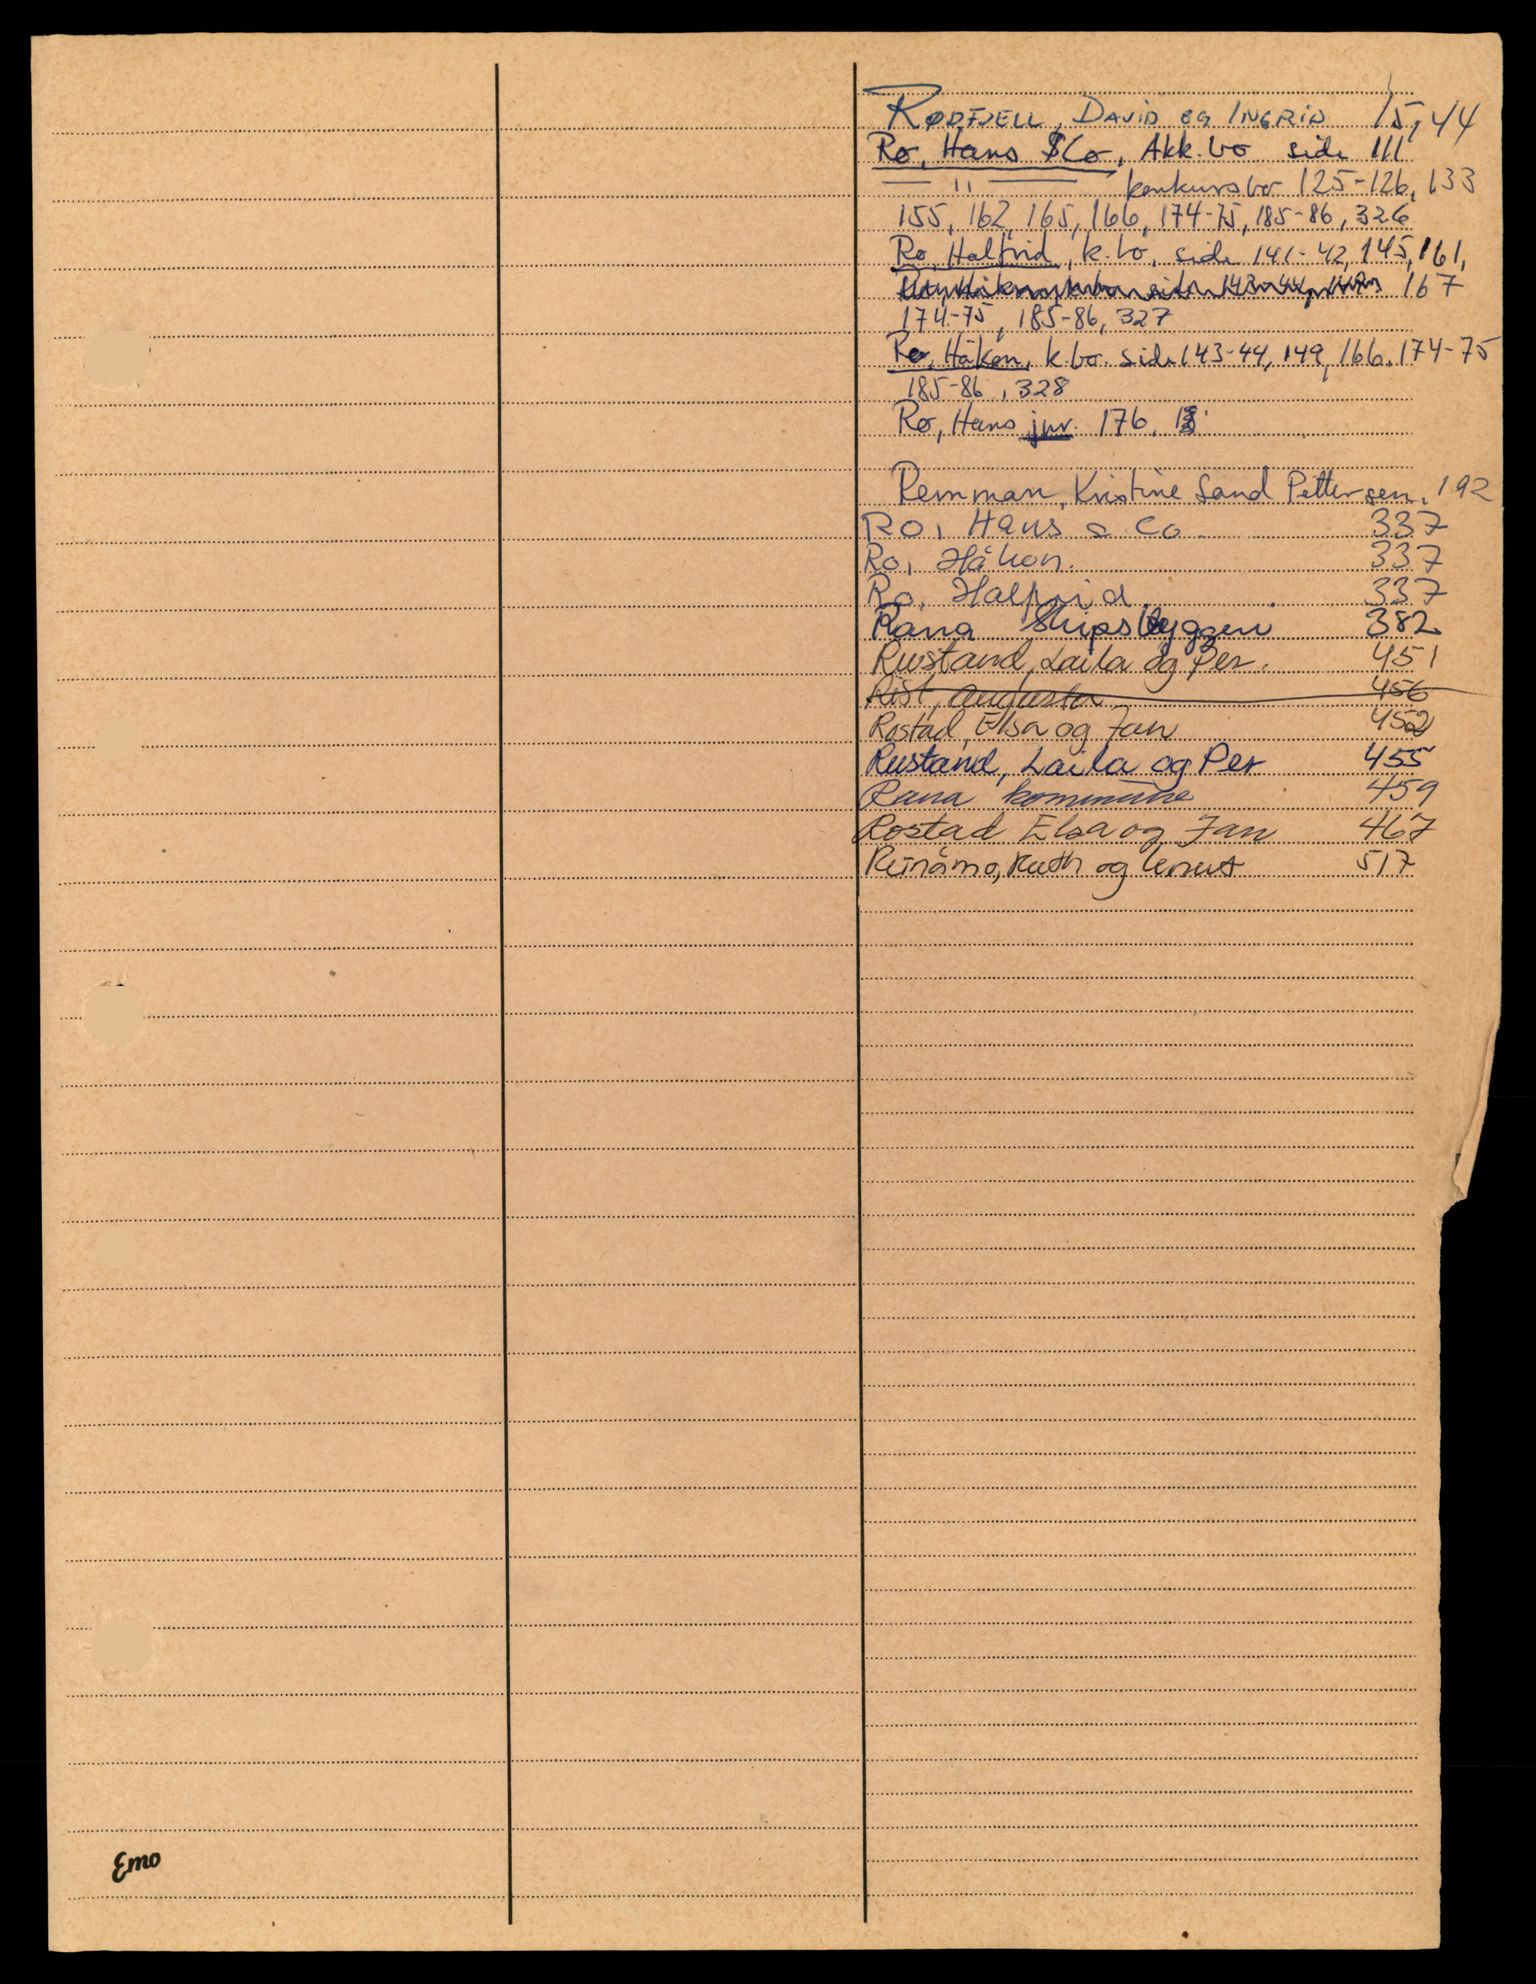 RØDFJELL, DAVID OG INGRID 15, 44
Ro, Hans & Co, Akk. bo side 111
— " — konkursbo 125-126, 133
155, 162, 165, 166, 174-75, 185-86, 326
Ro, Halfrid, k. bo, side 141-42, 145, 161,
Ro, Håkon, k. bo. side 143-44, 149 167
174-75, 185-86, 327
Ro, Håkon, k. bo. side 143-44, 149, 166, 174-75
185-86, 328
Ro, Hans jnr. 176,
Remman, Kristine Sand Pettersen, 192
Ro, Hans & Co. 337
Ro, Håkon. 337
Ro, Halfrid 337
Rana Skipsbyggeri 382
Rustand, Laila og Per. 451
Rist, Augusta 456
Rostad, Elsa og Jan 452
Rustand, Laila og Per 455
Rana kommune 459
Rostad Elsa og Jan 467
Reinåmo, Ruth og Knut 517
Emo